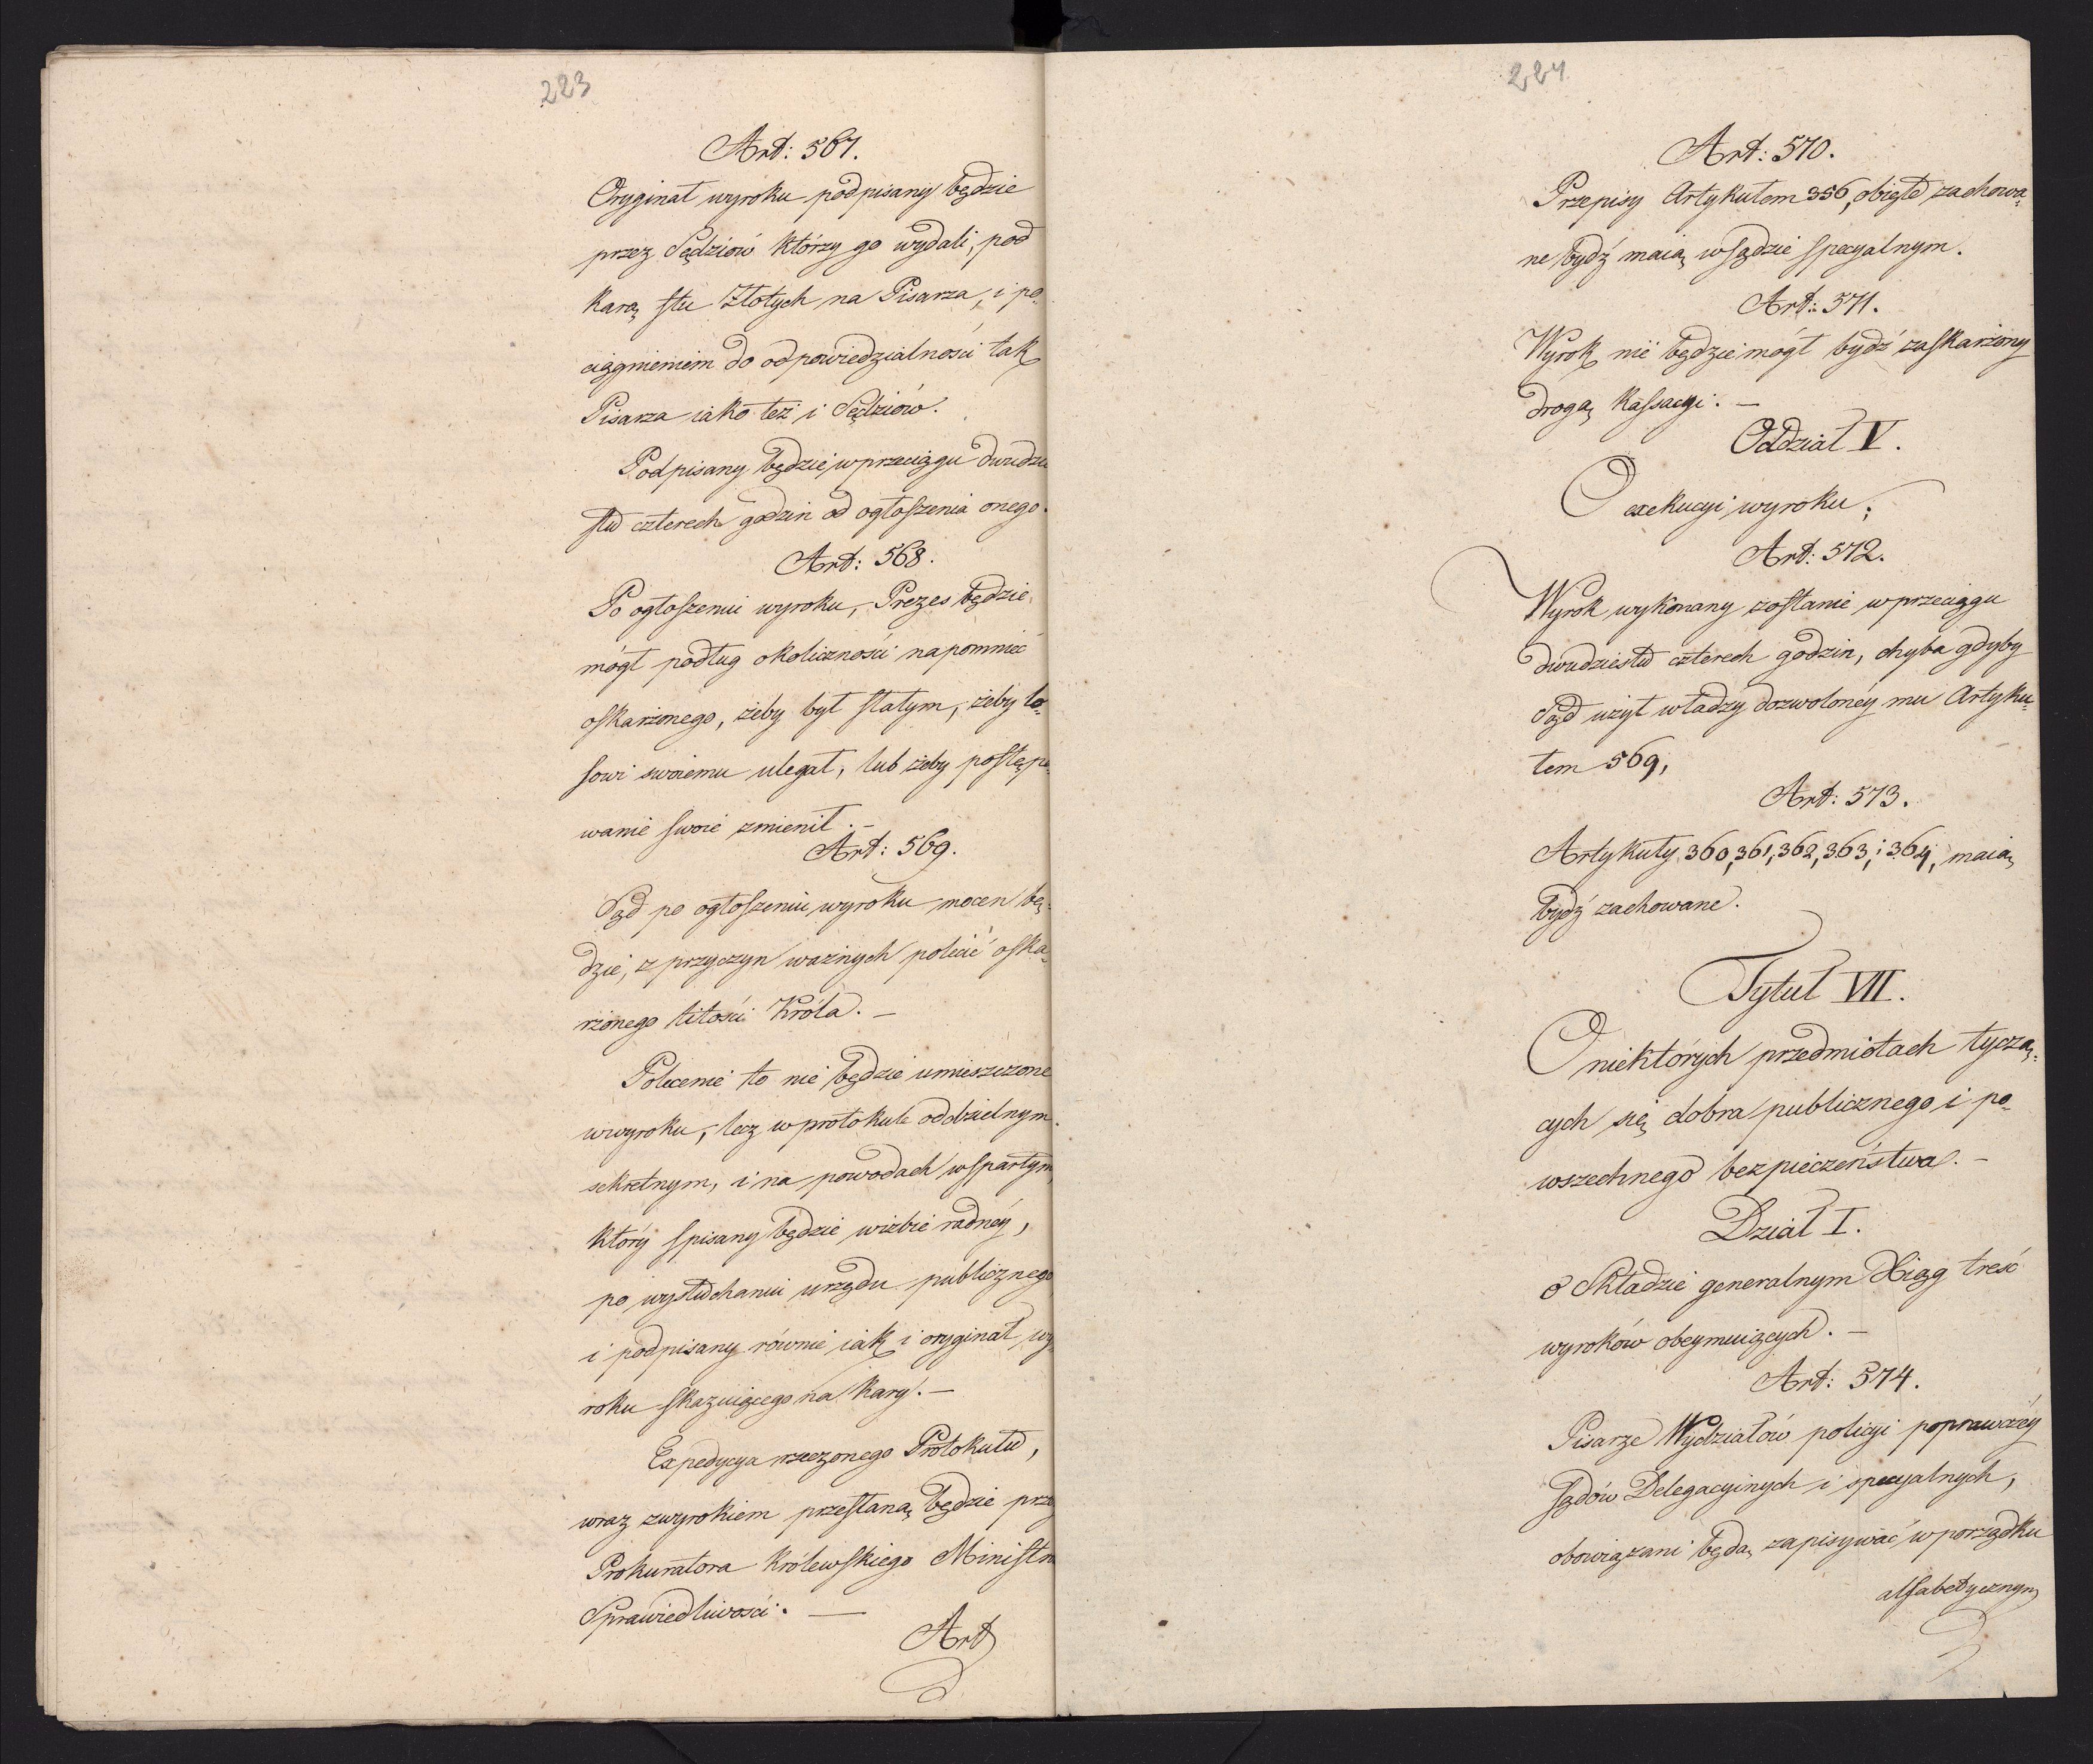 223
Art: 567.
Oryginał wyroku podpisany będzie
przez Sędziów którzy go wydali, pod
karą stu złotych na Pisarza, i po-
ciągnieniem do odpowiedzialności tak
Pisarza iako też i Sędziów.
Podpisany będzie w przeciągu dwudzie
stu czterech godzin od ogłoszenia onego.
Art: 568.
Po ogłoszeniu wyroku, Prezes będzie
mógł podług okoliczności napomnieć
oskarżonego, żeby był stałym, żeby lo-
sowi swoiemu uległ, lub żeby postępo-
wanie swoie zmienił. -
Art: 569.
Sąd po ogłoszeniu wyroku mocen bę-
dzie, z przyczyn ważnych polecić oska-
rżonego litości Króla. -
Polecenie to nie będzie umieszczone
w wyroku, lecz w protokule oddzielnym
sekretnym, i na powodach wspartym
który spisany będzie w izbie radnéy,
po wysłuchaniu urzędu publicznego
i podpisany równie iak i oryginał wy-
roku skazuiącego na karę. -
Expedycya rzeczonego Protokułu,
wraz z wyrokiem przesłaną będzie przez
Prokuratora Królewskiego Ministro
Sprawiedliwości. —
Art
224
Art: 570.
Przepisy Artykułem 356, obięte zachowa-
ne bydź maią w sądzie specyalnym.
Art: 571.
Wyrok nie będzie mógł bydź zaskarżony
drogą kassacyi. -
Oddział V.
O exekucyi wyroku;
Art: 572.
Wyrok wykonany zostanie w przeciągu
dwudziestu czterech godzin, chyba gdyby
Sąd użył władzy dozwolonéy mu Artyku-
łem 569,
Art: 573.
Artykuły 360, 361, 362, 363, i 364, maią
bydź zachowane.
Tytuł VII.
O niektórych przedmiotach tyczą-
cych się dobra publicznego i po-
wszechnego bezpieczeństwa. -
Dział I.
o Składzie generalnym Xiąg treść
wyroków obeymuiących. -
Art: 574.
Pisarze Wydziałów policyi poprawczéy
sądów Delegacyinych i specyalnych,
obowiązani będą zapisywać w porządku
alfabetycznym